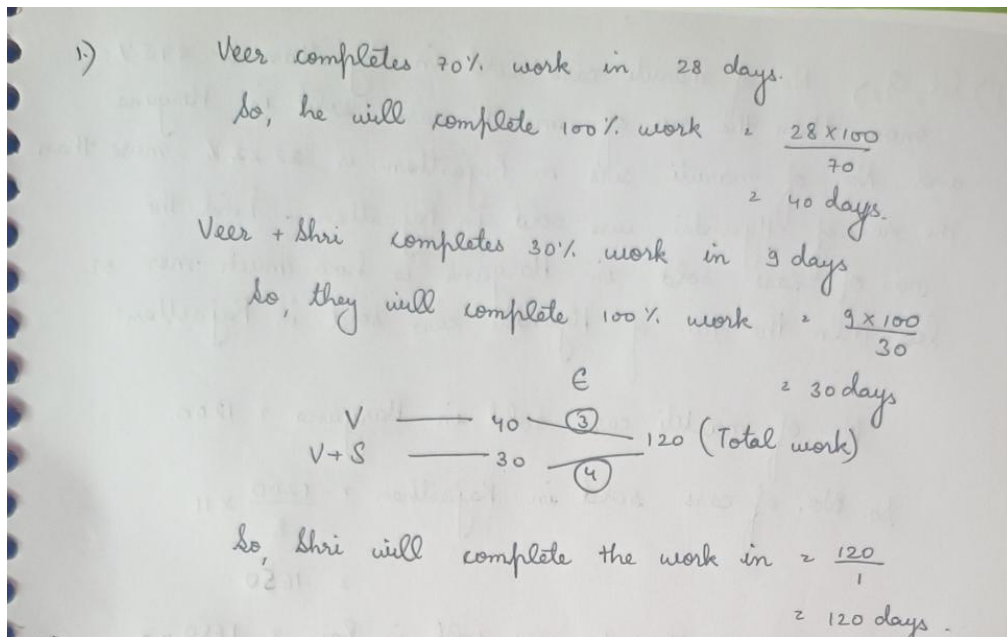 1.) Veer completes 70% work in 28 days.
So, he will complete 100% work = 28 × 100
70
= 40 days.
Veer + Shri completes 30% work in 9 days
So, they will complete 100% work = 9 × 100
30
= 30 days
E
V — 40 — 3
120 (Total work)
V+S — 30 — 4
So, Shri will complete the work in = 120
1
= 120 days.